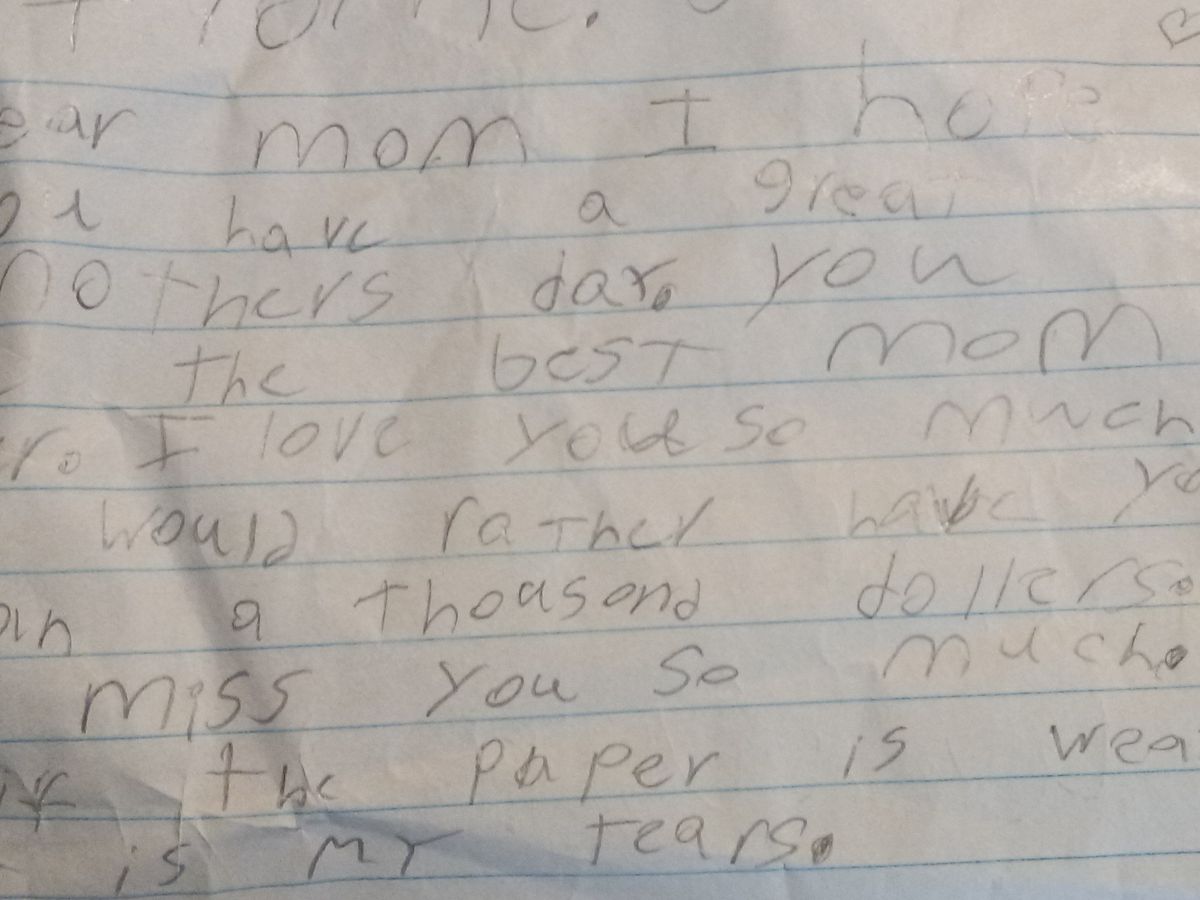 ear mom I hope
ou have a great
mothers day. you
the best mom
er. I love you so much
would rather have yo
an a thousand dollers.
miss you so much.
if the paper is wea
is my tears.